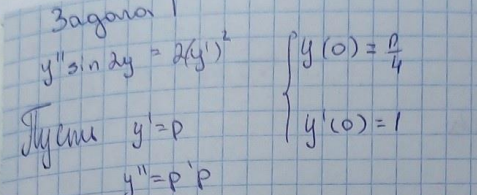 Задача 1
y'' sin 2y = 2(y')²
{ y(0) = π/4
y'(0) = 1
Пусть y' = p
y'' = p'p